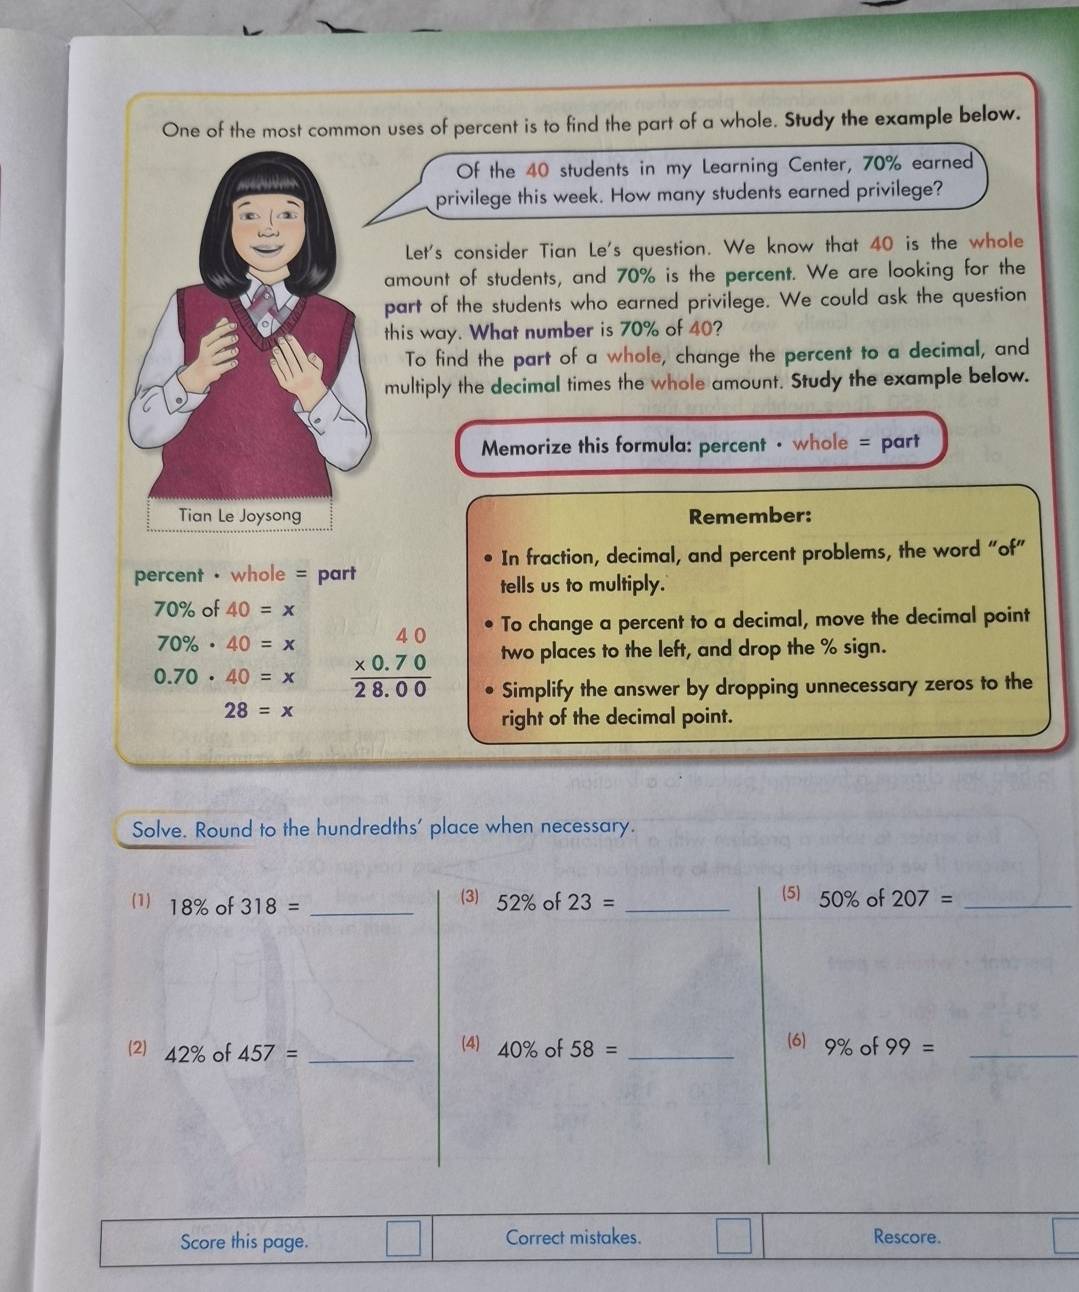 One of the most common uses of percent is to find the part of a whole. Study the example below.
Of the 40 students in my Learning Center, 70% earned
privilege this week. How many students earned privilege?
Let's consider Tian Le's question. We know that 40 is the whole
amount of students, and 70% is the percent. We are looking for the
part of the students who earned privilege. We could ask the question
this way. What number is 70% of 40?
To find the part of a whole, change the percent to a decimal, and
multiply the decimal times the whole amount. Study the example below.
Memorize this formula: percent · whole = part
Tian Le Joysong
percent · whole = part
70% of 40 = x
70% · 40 = x
0.70 · 40 = x
28 = x
40
x 0.70
28.00
Remember:
• In fraction, decimal, and percent problems, the word "of"
tells us to multiply.
• To change a percent to a decimal, move the decimal point
two places to the left, and drop the % sign.
• Simplify the answer by dropping unnecessary zeros to the
right of the decimal point.
Solve. Round to the hundredths' place when necessary.
(1) 18% of 318 = ________
(3) 52% of 23 = ________
(5) 50% of 207 = ________
(2) 42% of 457 = ________
(4) 40% of 58 = ________
(6) 9% of 99 = ________
Score this page.
Correct mistakes.
Rescore.